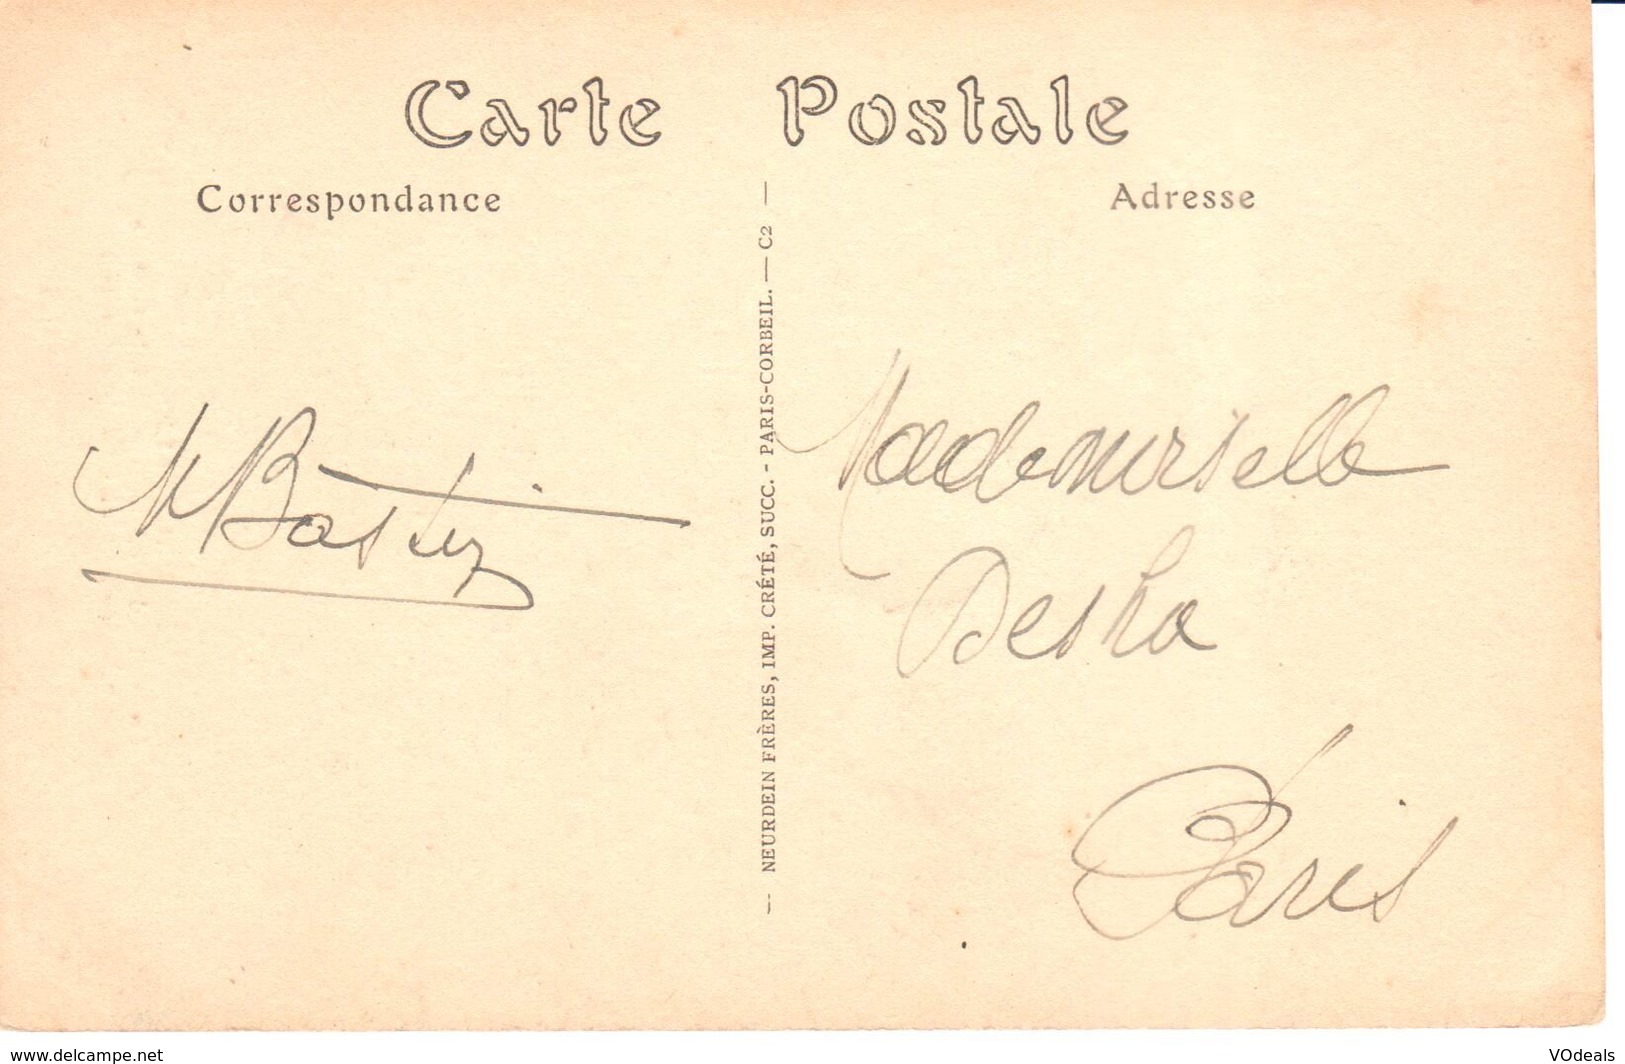 Carte Postale
Correspondance
Adresse
M Bastin
NEURDEIN FRÈRES, IMP. CRÉTÉ, SUCC. - PARIS-CORBEIL. — C2
Mademoiselle
Desha
Paris
www.delcampe.net
VOdeals